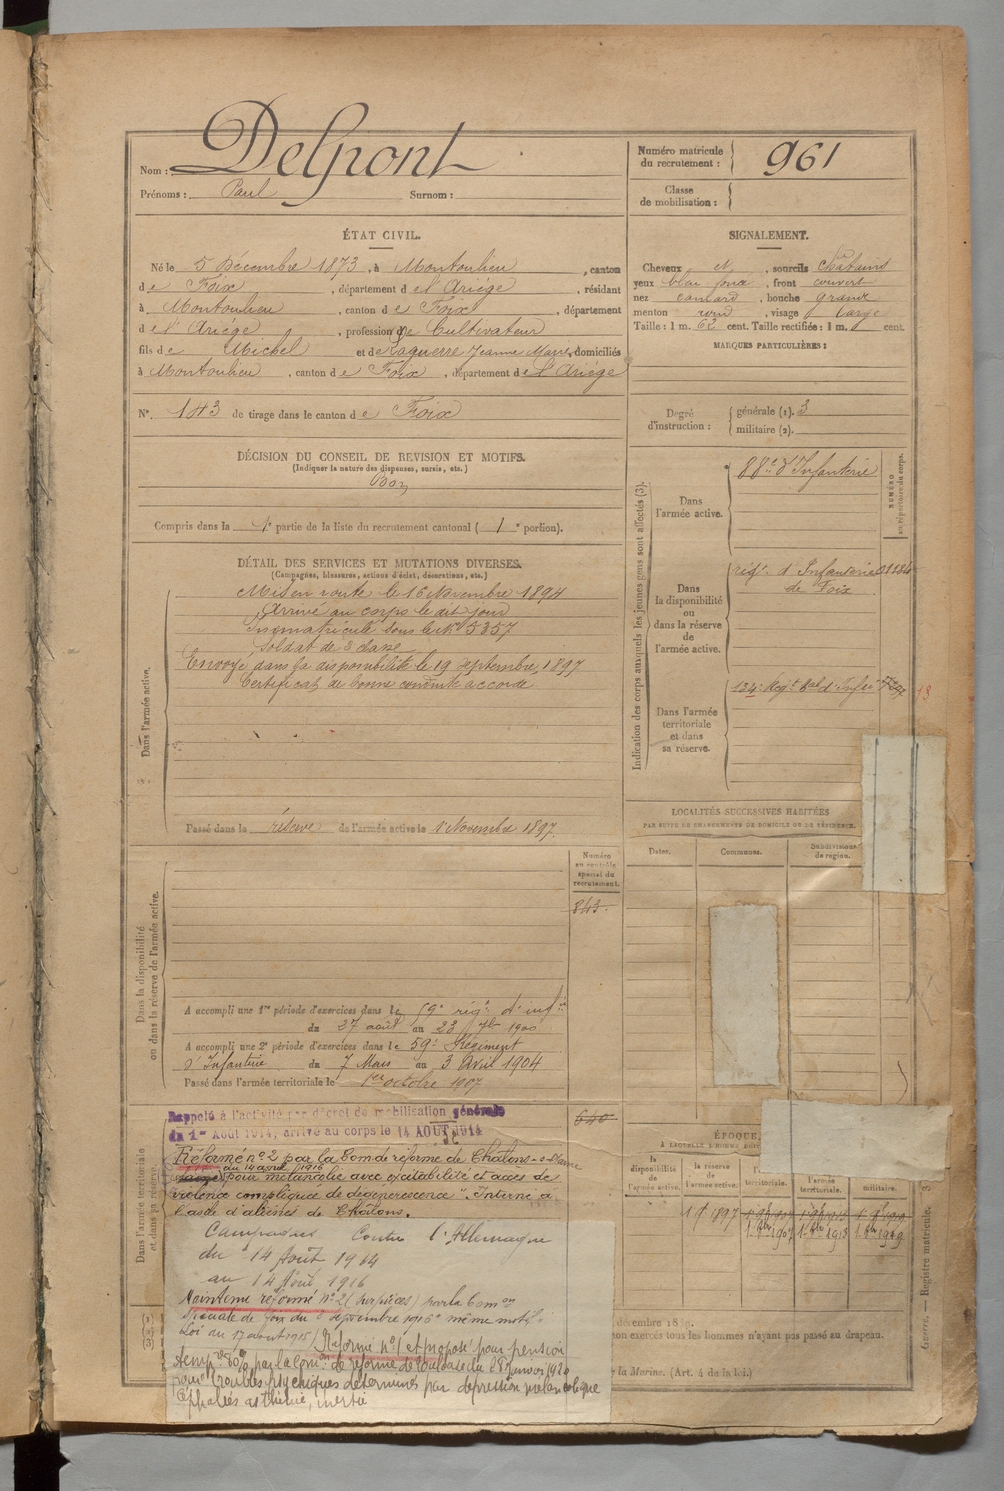 Nom : Delpont
Prénoms : Paul Surnom :
Numéro matricule du recrutement : 961
Classe de mobilisation :
ÉTAT CIVIL.
Né le 5 Décembre 1873, à Montoulieu, canton
de Foix, département de l'Ariège, résidant
à Montoulieu, canton de Foix, département
de l'Ariège, profession de Cultivateur
fils de Michel et de Laguerre Jeanne Marie, domiciliés
à Montoulieu, canton de Foix, département de l'Ariège
N° 143 de tirage dans le canton de Foix
SIGNALEMENT.
Cheveux et, sourcils châtains
yeux bleu, front couvert
nez camard, bouche grande
menton rond, visage large
Taille : 1 m. 62 cent. Taille rectifiée : 1 m. cent.
MARQUES PARTICULIÈRES :
Degré d'instruction : générale (1). 3
militaire (2).
DÉCISION DU CONSEIL DE REVISION ET MOTIFS.
(Indiquer la nature des dispenses, sursis, etc.)
Bon
Compris dans la 1e partie de la liste du recrutement cantonal ( 1e portion).
DÉTAIL DES SERVICES ET MUTATIONS DIVERSES.
(Campagnes, blessures, actions d'éclat, décorations, etc.)
Dans l'armée active.
Mis en route le 16 Novembre 1894
Arrivé au corps le dit jour
Immatriculé sous le No 5357
Soldat de 2 classe
Envoyé dans la disponibilité le 19 septembre 1897
Certificat de bonne conduite accordé
Passé dans la réserve de l'armée active le 1 Novembre 1897.
Indication des corps auxquels les jeunes gens sont affectés (3).
NUMÉRO au répertoire du corps.
Dans l'armée active.
88e d'Infanterie
Dans la disponibilité ou dans la réserve de l'armée active.
régt d'Infanterie
de Foix
Dans l'armée territoriale et dans sa réserve.
134e Régt
13
LOCALITÉS SUCCESSIVES HABITÉES
PAR SUITE DE CHANGEMENTS DE DOMICILE OU DE RÉSIDENCE.
Dates. Communes. Subdivisions de région.
Dans la disponibilité ou dans la réserve de l'armée active.
Numéro au contrôle spécial du recrutement.
843
A accompli une 1re période d'exercices dans le 59e régt d'infie
du 27 août au 23 7bre 1900
A accompli une 2e période d'exercices dans le 59e Régiment
d'Infanterie du 7 Mars au 3 Avril 1904
Passé dans l'armée territoriale le 1er octobre 1907
Dans l'armée territoriale et dans sa réserve.
640
Rappelé à l'activité par décret de mobilisation générale
du 1er Août 1914, arrivé au corps le 14 AOUT 1914
Réformé n° 2 par la Com de réforme de Chalons-s-Marne
du 14 avril 1916
pour mélancolie avec excitabilité et accès de
violence compliquée de dégénérescence". Interné à
l'asile d'aliénés de Chalons.
Campagnes Contre l'Allemagne
du 14 Août 1914
au 14 Août 1916
Maintenu réformé N° 2 (sur pièces) par la Comon
spéciale de Foix du septembre 1916 même motif.
Loi du 17 aout 1915 / Réformé n° 1 et proposé pour pension
temp re par la Comon de réforme de Toulouse du 28 janvier 1920
pour troubles psychiques déterminés par dépression mélancolique
Céphalées asthénie, inertie
ÉPOQUE,
la disponibilité de l'armée active. la réserve de l'armée active. territoriale. l'armée territoriale. militaire.
1 9 1897
1. 8bre 1907 1. 8bre 1913 1. 8bre 1919
non exercés tous les hommes n'ayant pas passé au drapeau.
la Marine. (Art. 4 de la loi.)
Guerre. — Registre matricule.